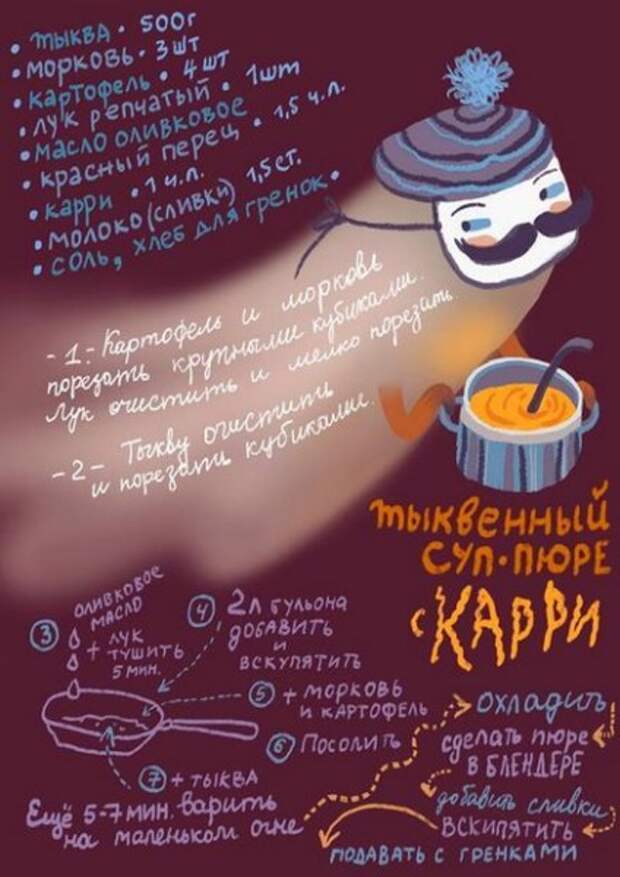 • тыква • 500г
• морковь • 3 шт
• картофель • 4 шт
• лук репчатый • 1шт
• масло оливковое
• красный перец • 1,5 ч.л.
• карри • 1 ч.л.
• молоко (сливки) 1,5 ст.
• соль, хлеб для гренок •
- 1 - Картофель и морковь
порезать крупными кубиками.
Лук очистить и мелко порезать.
- 2 - Тыкву очистить
и порезать кубиками.
тыквенный
суп-пюре
с Карри
3 оливковое
масло
+ лук
тушить
5 мин.
4 2л бульона
добавить
и
вскупятить
5 + морковь
и картофель
6 Посолить
7 + тыква
Ещё 5-7 мин. варить
на маленьком огне
охладить
сделать пюре
в блендере
добавить сливки
вскипятить
подавать с гренками